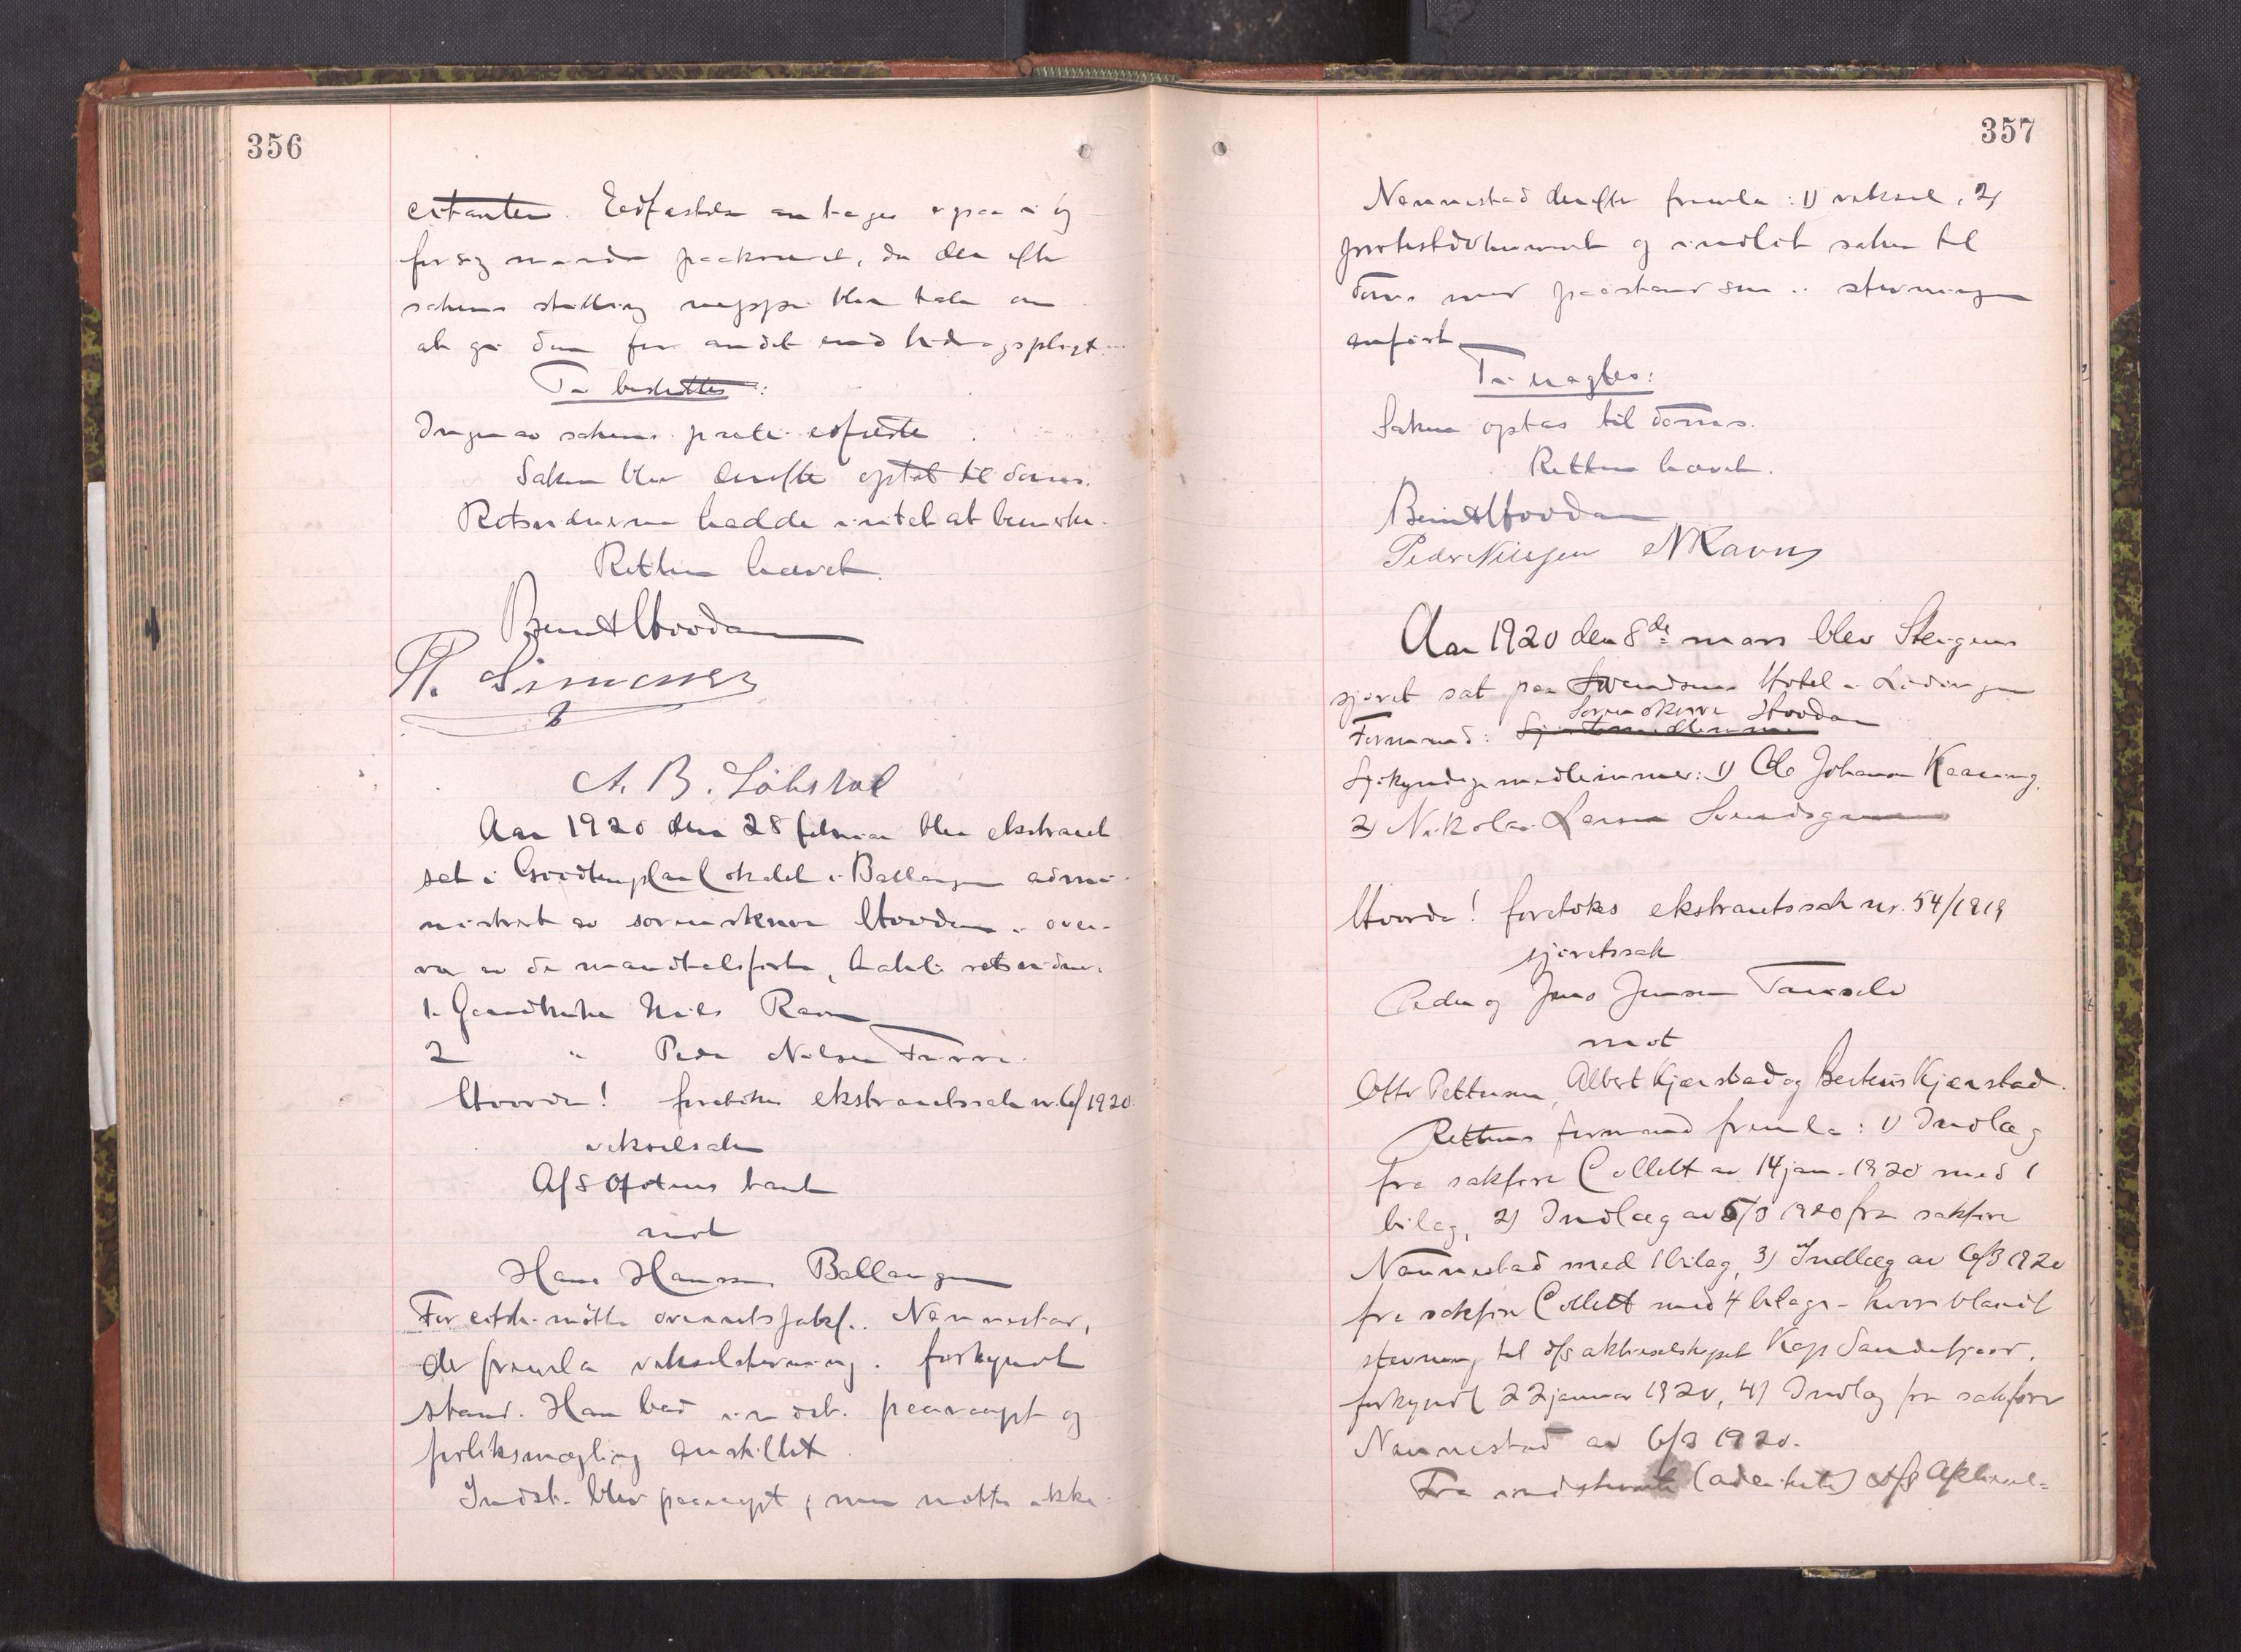 356
citanten. Edfæstelse antages ogsaa i og
for sig mindre paakrævet, da der efter
sakens stilling neppe blir tale om
at gi dom for andet end bidragspligt
Ti besluttes:
Ingen av sakens parter edfæstes.
Saken blev derefter optat til doms.
Retsvidnerne hadde intet at bemerke.
Retten hævet.
Bernt Hovdan
P. Simonsen
A. B. Löhstal
Aar 1920 den 28 februar blev ekstraret
sat i Goodtemplarlokalet i Ballangen admi-
nistrert av sorenskriver Hovdan i over-
vær av de mandtalsførte, kaldte retsvidner
1. Gaardbruker Nils Ravn
2 " Peder Nilsen
Hvorda! foretokes ekstraretssak nr. 6/1920
vekselsak
A/S Ofotens bank
mot
Hans Hansen, Ballangen
For citch. møtte overretssakf. Nannestad,
der fremla vekselstevning i forkyndt
stand. Han bad indst. paaropt og
forliksmægling anstillet.
Indst. blev paaropt, men møtte ikke.
357
Nannestad derefter fremla: 1) veksel, 2)
protestdokument og indlot saken til
doms med paastand som i stevningen
anført.
Ti vragtes:
Saken optas til doms.
Retten hævet.
Bernt Hovdan
Peder Nilssen N Ravn
Aar 1920 den 8de mars blev Steigens
sjøret sat paa Svendsens Hotel i Lødingen
Sorenskriver Hovdan
Formand:
Sjøkyndige medlemmer: 1) Ole Johansen Kaaring,
2) Nikolai Larsen Svendsgam
Hvorda! foretokes ekstraretssak nr. 54/1919
sjøretssak
Peder og Jens Jensen
mot
Otto Pettersen, Albert Kjærstad og Berteus Kjærstad.
Rettens formand fremla: 1) Indlæg
fra sakfører Collett av 14 jan. 1920 med 1
bilag, 2) Indlæg av 5/3 1920 fra sakfører
Nannestad med 1 bilag, 3) Indlæg av 6/3 1920
fra sakfører Collett med 4 bilage - hvoriblandt
stevning til d/s aktieselskapet Kap Sandefjord,
forkyndt 22 januar 1920, 4) Indlæg fra sakfører
Nannestad av 6/3 1920.
Fra indstevnte (adcitate) d/s Aktiesel=